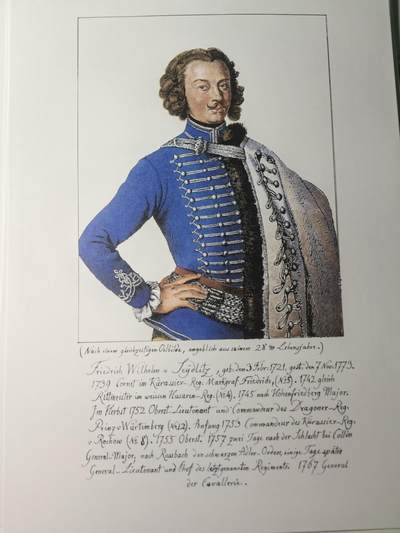 (Nach einem gleichzeitigen Oelbilde, angeblich aus seinem 28ten Lebensjahre.)
Friedrich Wilhelm v Seydlitz, geb. den 3 Febr. 1721, gest. den 7 Nov. 1773.
1739 Cornet im Kürassier-Reg. Markgraf Friedrich, (№5). 1742 gleich
Rittmeister im weissen Husaren-Reg. (№4). 1745 nach Hohenfriedberg Major.
Im Herbst 1752 Oberst-Lieutenant und Commandeur des Dragoner-Reg.
Prinz v Würtemberg (№12). Anfang 1753 Commandeur des Kürassier-Reg.
v Rochow (№8). 1755 Oberst. 1757 zwei Tage nach der Schlacht bei Collin
General-Major, nach Rossbach den schwarzen Adler-Orden, einige Tage später
General-Lieutenant und Chef des letztgenannten Regiments. 1767 General
der Cavallerie.